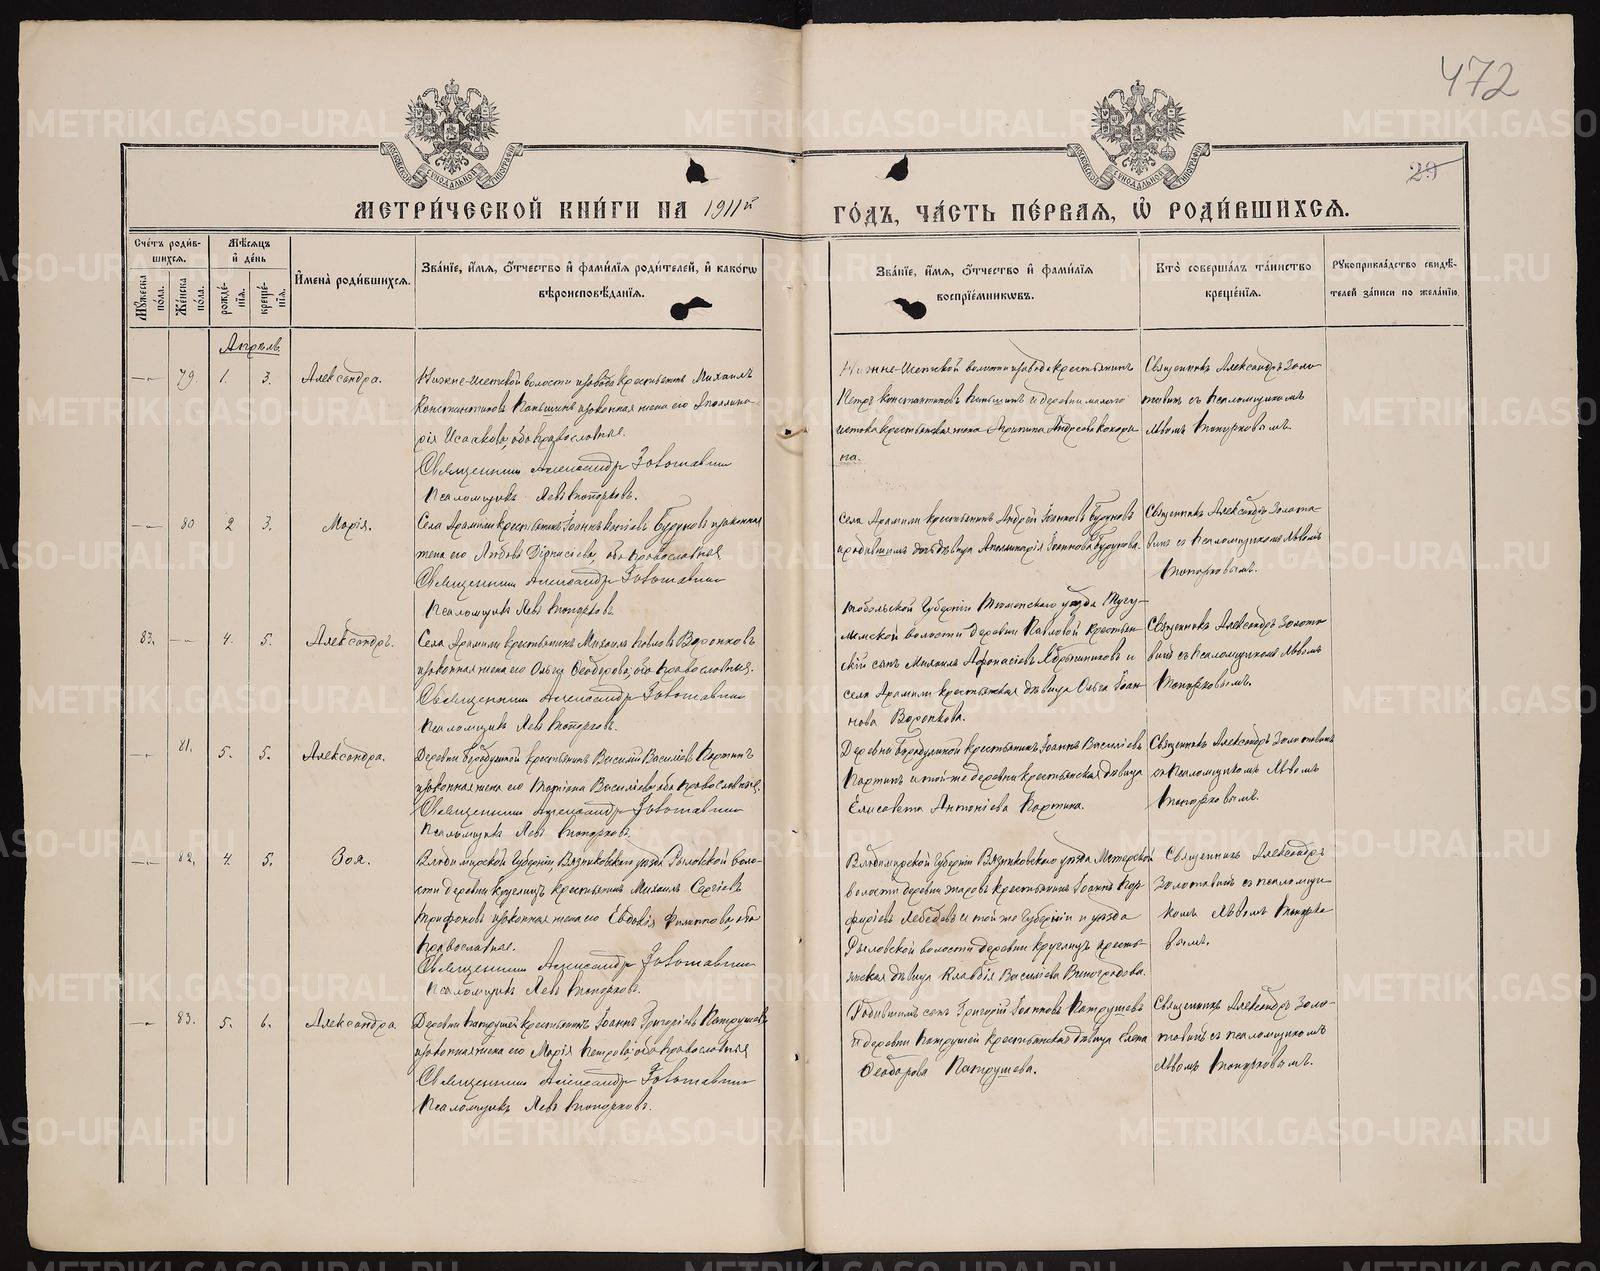 472
29
МЕТРИ́ЧЕСКОЙ КНИ́ГИ НА 1911й
ГО́ДЪ, ЧА́СТЬ ПЕ́РВАЯ, Ѡ҆ РОДИ́ВШИХСЯ.
Сче́тъ роди́вшихся.
Мꙋ́жеска по́ла.
Же́нска по́ла.
Мѣ́сяцъ и҆ де́нь
рожде́нїя.
креще́нїя.
И҆мена̀ роди́вшихся.
Зва́нїе, и҆́мя, ѻ҆́тчество и҆ фами́лїя роди́телей, и҆ како́гѡ
вѣроисповѣ́данїя.
Зва́нїе, и҆́мя, ѻ҆́тчество и҆ фами́лїя
воспрїе́мникѡвъ.
Кто̀ соверша́лъ та́инство
креще́нїя.
Рꙋкоприкла́дство свидѣ́-
телей за́писи по жела́нїю.
Апрѣль
79. 1. 3. Александра.
Нижне-Исетской волости крестьянинъ Михаилъ
Константиновъ Паньшинъ и законная жена его Аполлина-
рія Исаакова, оба православные.
Священникъ Александръ Золотавинъ
Псаломщикъ Левъ Топорковъ.
Нижне-Исетской волости крестьянинъ
Петръ Константиновъ Паньшинъ и деревни малаго
истока крестьянская жена Агрипина Андреева Кокори-
на.
Священникъ Александръ Золо-
тавинъ съ псаломщикомъ
Львомъ Топорковымъ.
80 2 3. Марія.
Села Арамили крестьянинъ Іоаннъ Бурковъ и законная
жена его Любовь Діонисіева, оба православные
Священникъ Александръ Золотавинъ
Псаломщикъ Левъ Топорковъ
Села Арамили крестьянинъ Андрей Іоанновъ
дѣвица Аполлинарія Іоаннова
Священникъ Александръ Золота-
винъ съ псаломщикомъ Львомъ
Топорковымъ.
83. 4. 5. Александръ.
Села Арамили крестьянинъ Михаилъ Павловъ Воронковъ
и законная жена его Ольга Ѳеодорова, оба православные.
Священникъ Александръ Золотавинъ
Псаломщикъ Левъ Топорковъ.
Тобольской губерніи Тюменскаго уѣзда Тугу-
лымской волости деревни Павловой крестьян-
скій сынъ Михаилъ Аѳанасіевъ и
села Арамили крестьянская дѣвица Ольга Іоан-
нова Воронкова.
Священникъ Александръ Золота-
винъ съ псаломщикомъ Львомъ
Топорковымъ.
81. 5. 5. Александра.
Деревни Бородулиной крестьянинъ Василій Василіевъ Партинъ
и законная жена его Василіева, оба православные.
Священникъ Александръ Золотавинъ
Псаломщикъ Левъ Топорковъ.
Деревни Бородулиной крестьянинъ Іоаннъ Василіевъ
Партинъ и той же деревни крестьянская дѣвица
Елисавета Антоніева Партина.
Священникъ Александръ Золотавинъ
съ псаломщикомъ Львомъ
Топорковымъ.
82. 4. 5. Зоя.
Владимірской губерніи, Вязниковскаго уѣзда Рыловской воло-
сти деревни Круглицъ крестьянинъ Михаилъ Сергіевъ
Трифоновъ и законная жена его Евдокія Филиппова, оба
православные.
Священникъ Александръ Золотавинъ
Псаломщикъ Левъ Топорковъ.
Владимірской губерніи Вязниковскаго уѣзда Мстерской
волости деревни крестьянинъ Іоаннъ Пор-
фиріевъ Лебедевъ и той же губерніи и уѣзда
Рыловской волости деревни Круглицъ кресть-
янская дѣвица Клавдія Василіева Виноградова.
Священникъ Александръ
Золотавинъ съ псаломщи-
комъ Львомъ Топорко-
вымъ.
83. 5. 6. Александра
Деревни Патрушей крестьянинъ Іоаннъ Григоріевъ Патрушевъ
и законная жена его Марія Петрова, оба православные
Священникъ Александръ Золотавинъ
Псаломщикъ Левъ Топорковъ.
сынъ Григорій Іоанновъ Патрушевъ
и деревни Патрушей крестьянская дѣвица Елена
Ѳеодорова Патрушева.
Священникъ Александръ Золо-
тавинъ съ псаломщикомъ
Львомъ Топорковымъ.
METRIKI.GASO-URAL.RU